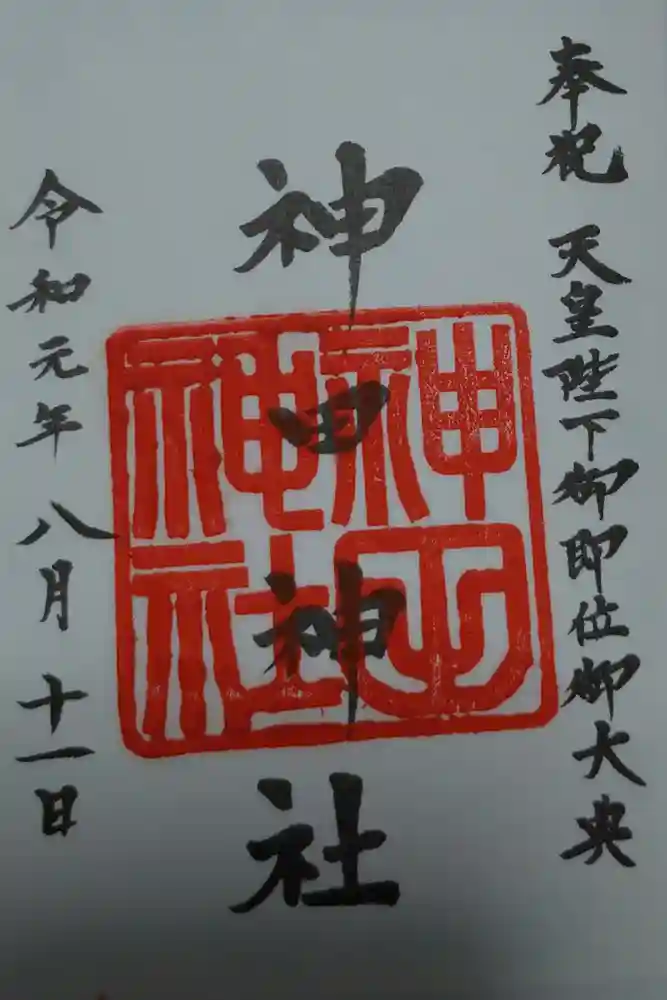 奉祝 天皇陛下御即位御大典
神田神社
令和元年八月十一日
神田神社